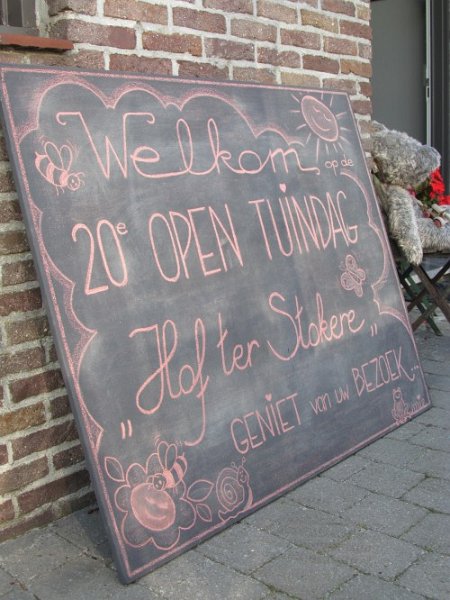 Welkom op de
20e OPEN TUINDAG
„Hof ter Stokere„
GENIET van uw BEZOEK...